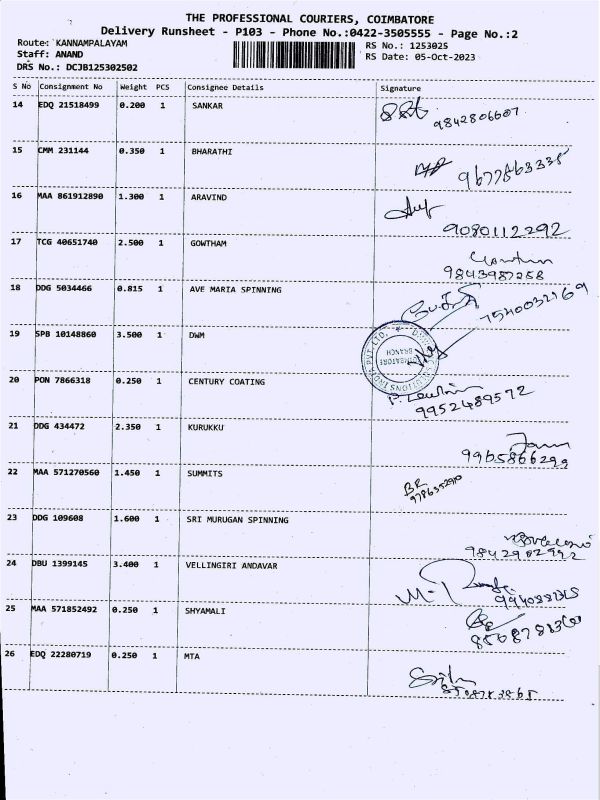 THE PROFESSIONAL COURIERS, COIMBATORE
Delivery Runsheet - P103 - Phone No.:0422-3505555 - Page No.:2
Route: KANNAMPALAYAM RS No.: 1253025
Staff: ANAND RS Date: 05-Oct-2023
DRS No.: DCJB125302502
S No Consignment No Weight PCS Consignee Details Signature
14 EDQ 21518499 0.200 1 SANKAR
9842806607
15 CMM 231144 0.350 1 BHARATHI
9677863335
16 MAA 861912890 1.300 1 ARAVIND
9080112292
17 TCG 40651740 2.500 1 GOWTHAM
9843987258
18 DDG 5034466 0.815 1 AVE MARIA SPINNING
7540032169
19 SPB 10148860 3.500 1 DWM
COIMBATORE
BRANCH
20 PON 7866318 0.250 1 CENTURY COATING
9952489572
21 DDG 434472 2.350 1 KURUKKU
9965866299
22 MAA 571270560 1.450 1 SUMMITS
BR
23 DDG 109608 1.600 1 SRI MURUGAN SPINNING
9842982992
24 DBU 1399145 3.400 1 VELLINGIRI ANDAVAR
25 MAA 571852492 0.250 1 SHYAMALI
26 EDQ 22280719 0.250 1 MTA